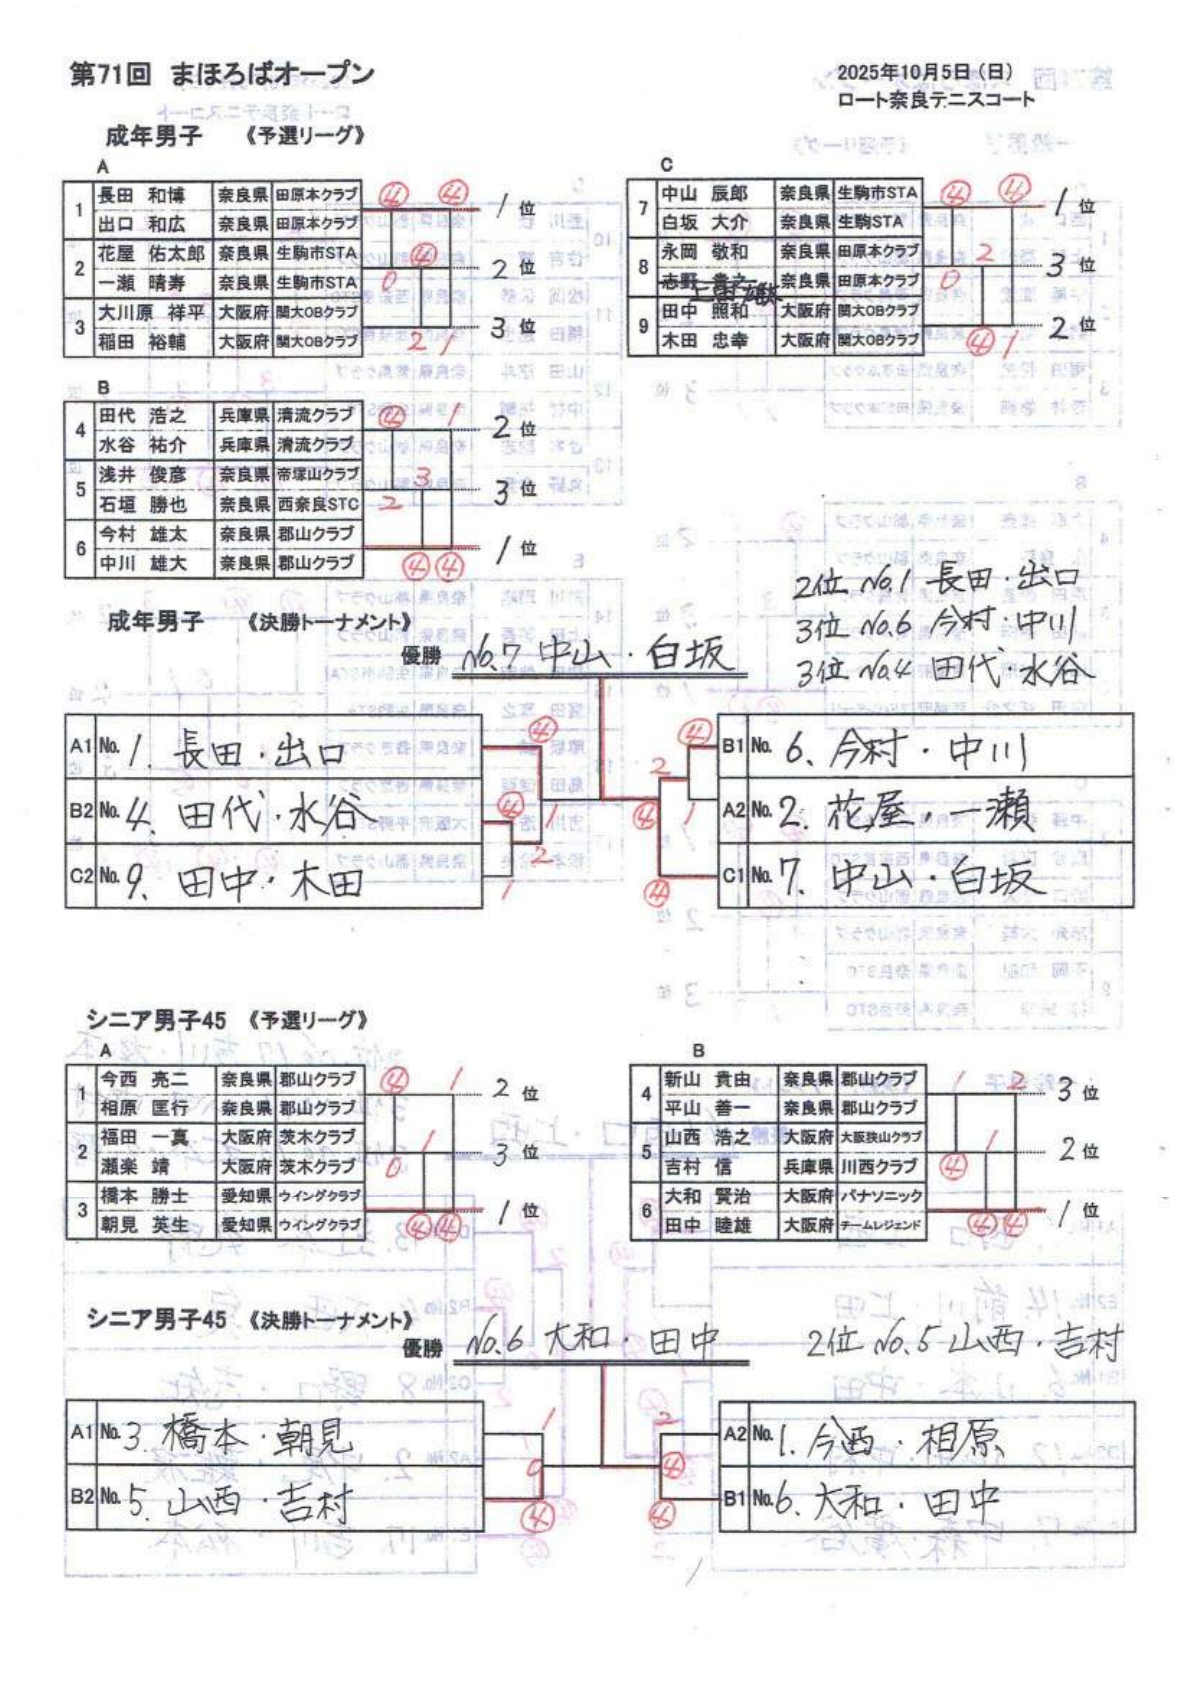 第71回 まほろばオープン
2025年10月5日（日）
ロート奈良テニスコート
成年男子 《予選リーグ》
A
1 長田 和博 奈良県 田原本クラブ ④ ④ 1位
出口 和広 奈良県 田原本クラブ
2 花屋 佑太郎 奈良県 生駒市STA ④ 2位
一瀬 晴寿 奈良県 生駒市STA 0
3 大川原 祥平 大阪府 関大OBクラブ 3位
稲田 裕輔 大阪府 関大OBクラブ 2 1
C
7 中山 辰郎 奈良県 生駒市STA ④ ④ 1位
白坂 大介 奈良県 生駒STA
8 永岡 敬和 奈良県 田原本クラブ 2 3位
志野 貴之 奈良県 田原本クラブ 0
9 田中 照和 大阪府 関大OBクラブ 2位
木田 忠幸 大阪府 関大OBクラブ ④ 1
B
4 田代 浩之 兵庫県 清流クラブ ④ 1 2位
水谷 祐介 兵庫県 清流クラブ
5 浅井 俊彦 奈良県 帝塚山クラブ 3 3位
石垣 勝也 奈良県 西奈良STC 2
6 今村 雄太 奈良県 郡山クラブ 1位
中川 雄大 奈良県 郡山クラブ ④ ④
2位 No.1 長田・出口
3位 No.6 今村・中川
3位 No.4 田代・水谷
成年男子 《決勝トーナメント》
優勝 No.7 中山・白坂
A1 No. 1. 長田・出口 ④
B2 No. 4. 田代・水谷 ④ 1
C2 No. 9. 田中・木田 2 1
④ B1 No. 6. 今村・中川
2 ④ 1 A2 No. 2. 花屋・一瀬
④ C1 No. 7. 中山・白坂
シニア男子45 《予選リーグ》
A
1 今西 亮二 奈良県 郡山クラブ ④ 1 2位
相原 匡行 奈良県 郡山クラブ
2 福田 一真 大阪府 茨木クラブ 1 3位
瀬楽 靖 大阪府 茨木クラブ 0
3 橋本 勝士 愛知県 ウイングクラブ 1位
朝見 英生 愛知県 ウイングクラブ ④ ④
B
4 新山 貴由 奈良県 郡山クラブ 1 2 3位
平山 善一 奈良県 郡山クラブ
5 山西 浩之 大阪府 大阪狭山クラブ 1 2位
吉村 信 兵庫県 川西クラブ ④
6 大和 賢治 大阪府 パナソニック 1位
田中 睦雄 大阪府 チームレジェンド ④ ④
シニア男子45 《決勝トーナメント》
優勝 No.6 大和・田中
2位 No.5 山西・吉村
A1 No. 3. 橋本・朝見 1
B2 No. 5. 山西・吉村 0 ④
2 A2 No. 1. 今西・相原
④ ④ B1 No. 6. 大和・田中